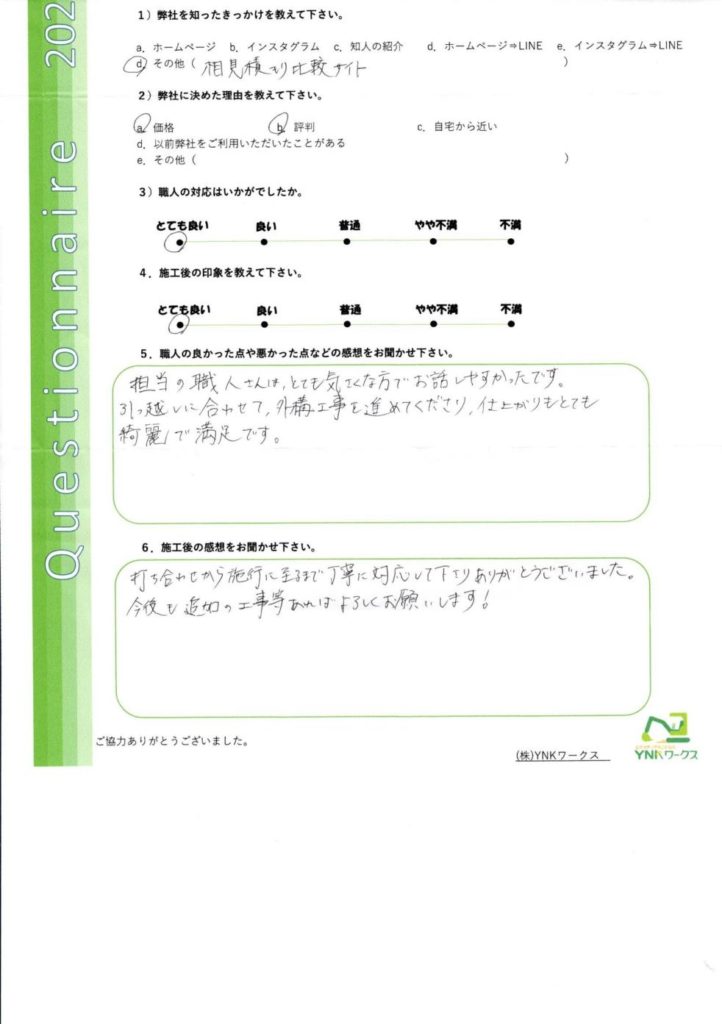 Questionnaire 202
1）弊社を知ったきっかけを教えて下さい。
a. ホームページ b. インスタグラム c. 知人の紹介 d. ホームページ⇒LINE e. インスタグラム⇒LINE
d. その他（ 相見積もり比較サイト ）
2）弊社に決めた理由を教えて下さい。
a. 価格 b. 評判 c. 自宅から近い
d. 以前弊社をご利用いただいたことがある
e. その他（ ）
3）職人の対応はいかがでしたか。
とても良い 良い 普通 やや不満 不満
4．施工後の印象を教えて下さい。
とても良い 良い 普通 やや不満 不満
5．職人の良かった点や悪かった点などの感想をお聞かせ下さい。
担当の職人さんは、とても気さくな方でお話しやすかったです。
引っ越しに合わせて、外構工事を進めてくださり、仕上がりもとても
綺麗で満足です。
6．施工後の感想をお聞かせ下さい。
打ち合わせから施行に至るまで丁寧に対応して下さりありがとうございました。
今後も追加の工事等あればよろしくお願いします！
ご協力ありがとうございました。
(株)YNKワークス
YNKワークス